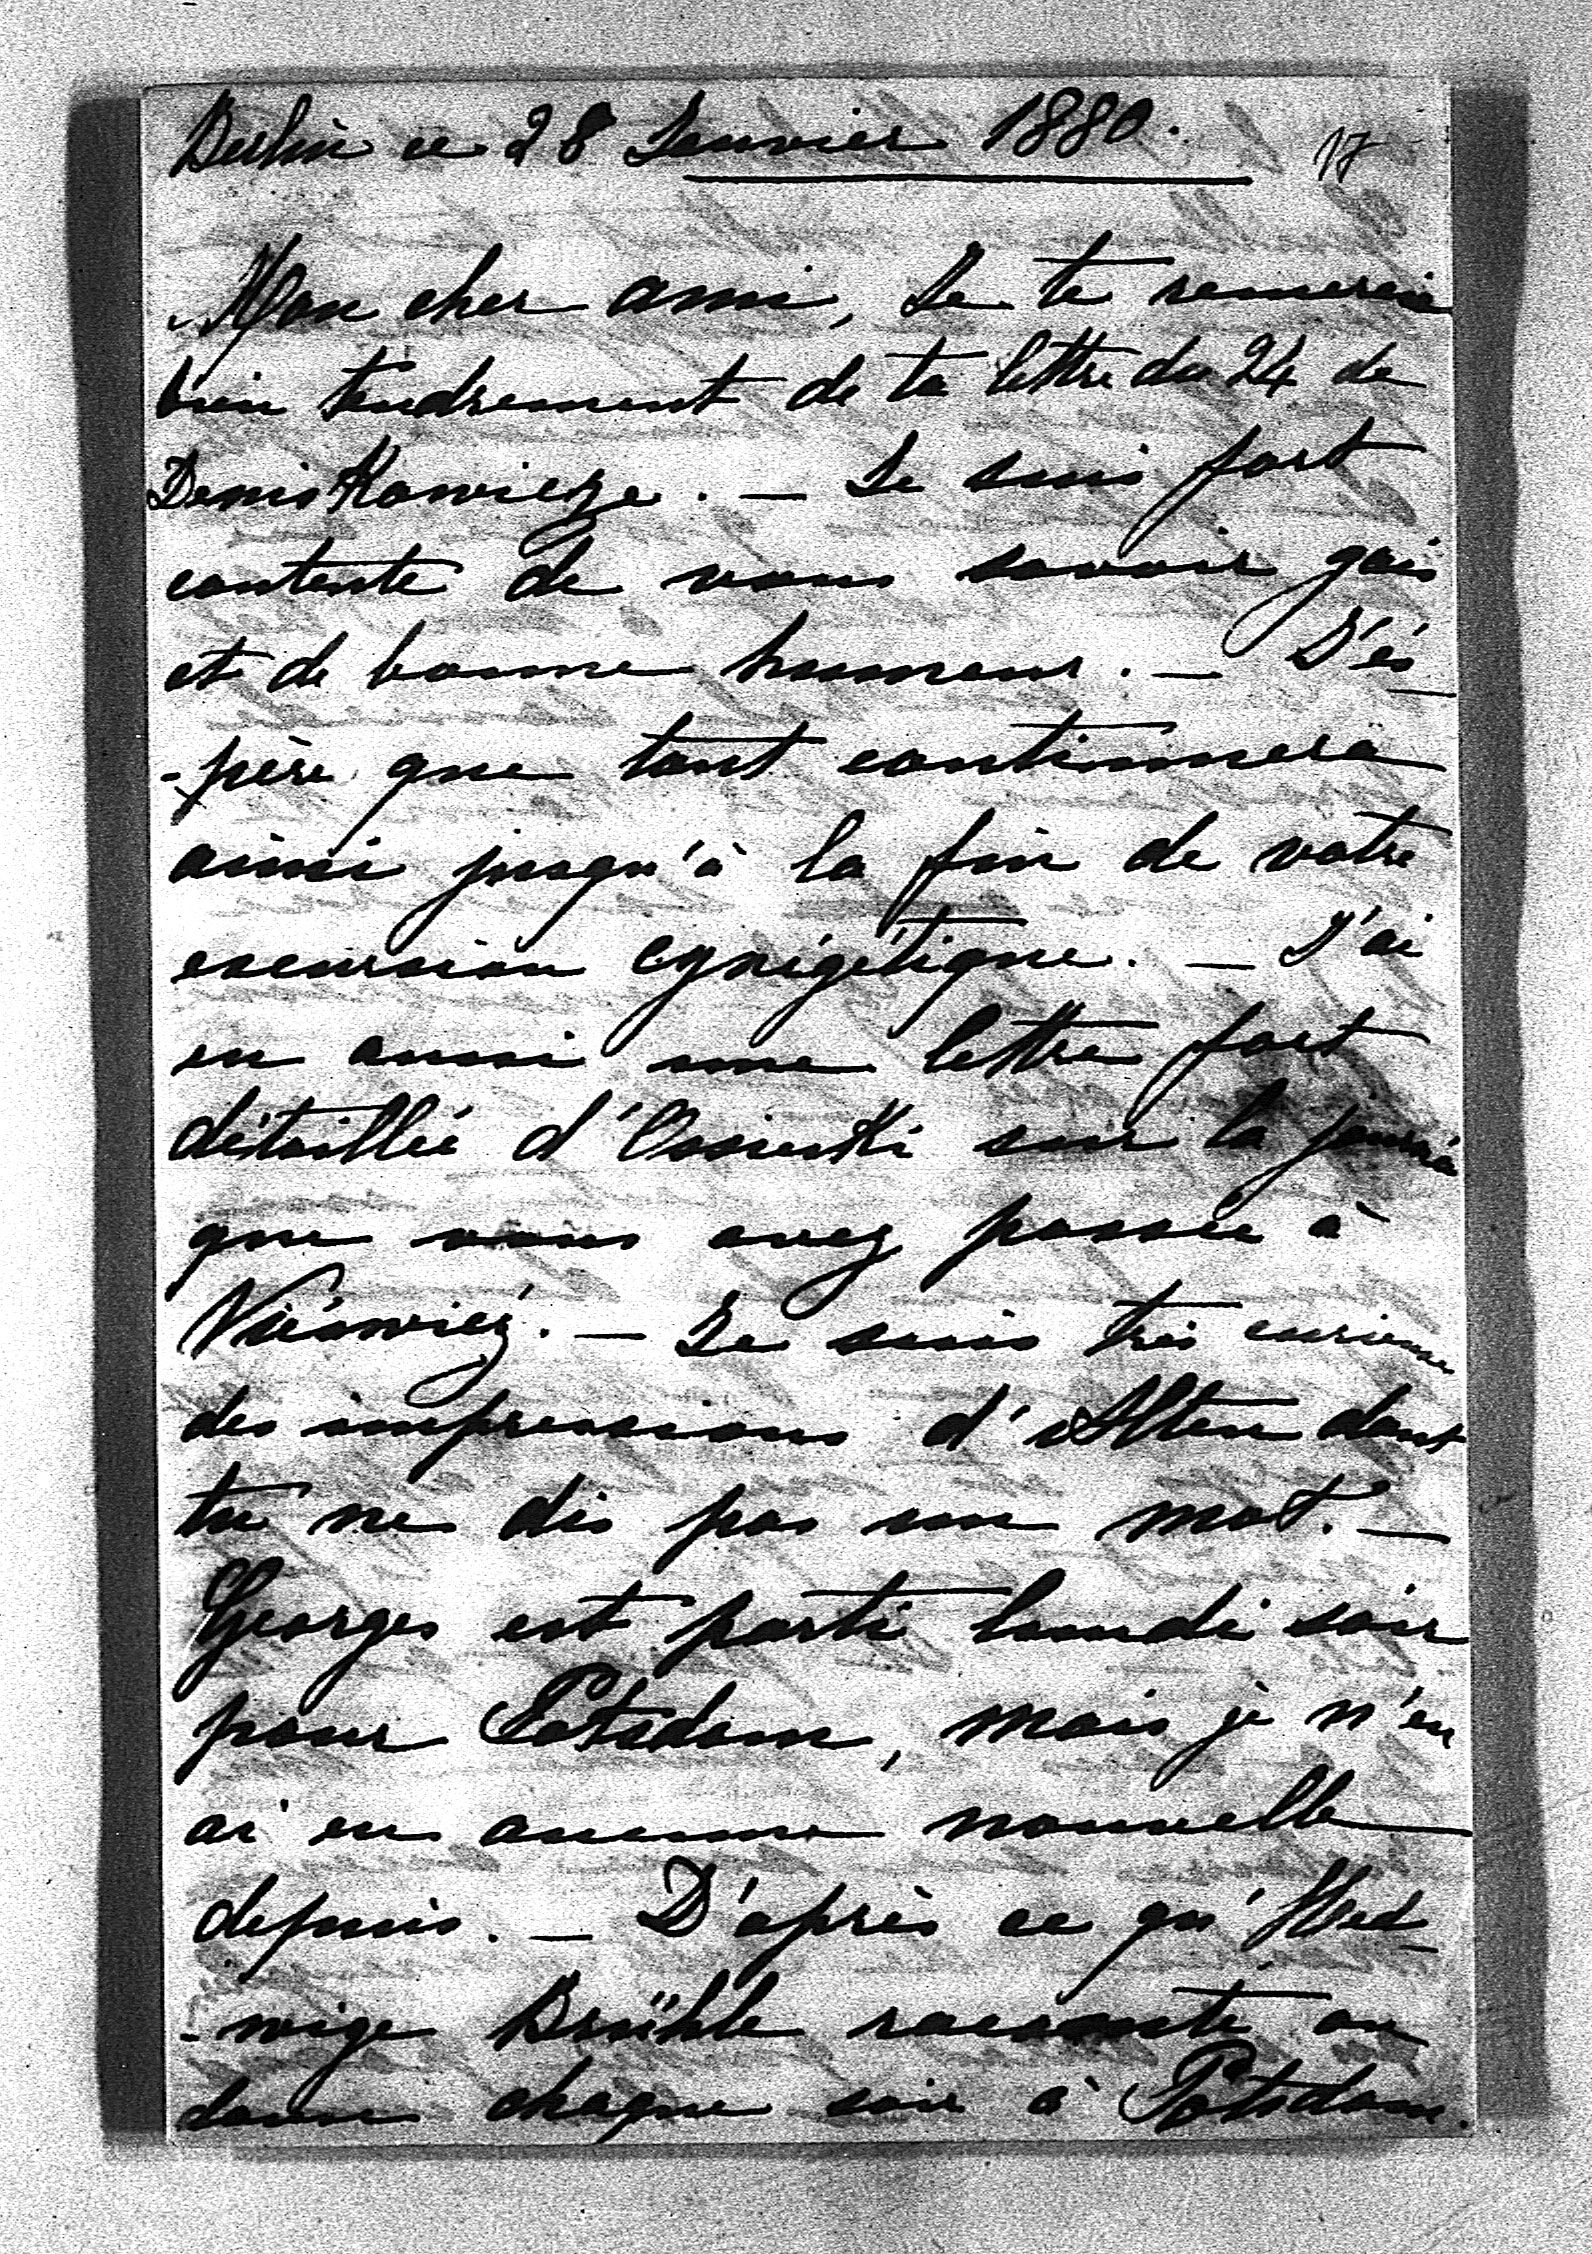 Berlin ce 28 Janvier 1880.
17
Mon cher ami, Je te remercie
bien tendrement de ta lettre du 24 de
Deniskowicze. — Je suis fort
contente de vous savoir gais
et de bonne humeur. — J'es-
-père que tout continuera
ainsi jusqu'à la fin de votre
excursion cynégétique. — J'ai
eu aussi une lettre fort
détaillée d'Ossienki sur la journée
que vous avez passée à
Nieświéz. — Je suis très curieuse
des impressions d'Alten dont
tu ne dis pas un mot. —
Georges est parti lundi soir
pour Potsdam, mais je n'en
ai eu aucune nouvelle
depuis. — D'après ce qu'Hed-
-wige Brühl raconte on
danse chaque soir à Potsdam.